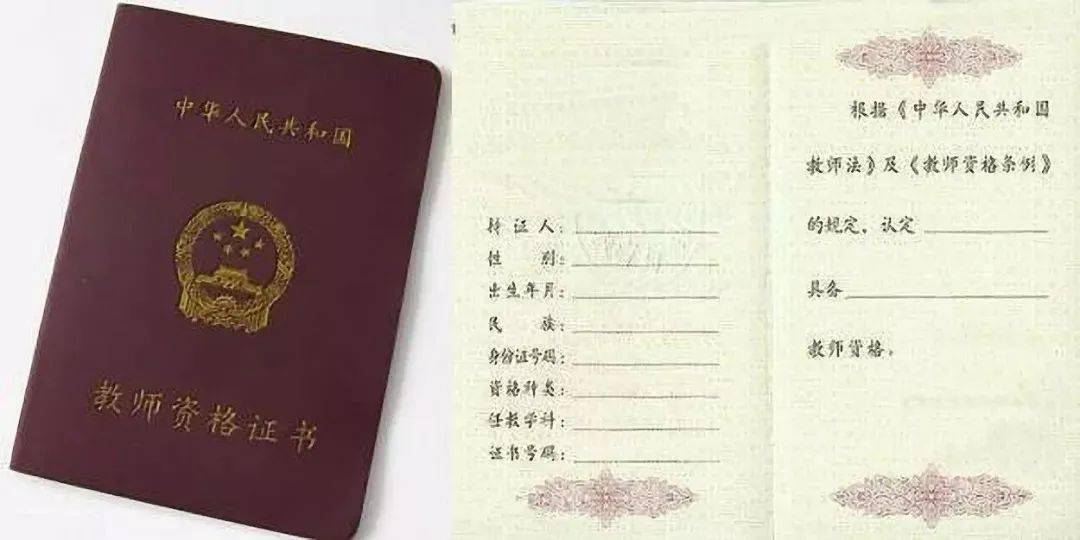 中华人民共和国
教师资格证书
持 证 人：
性 别：
出生年月：
民 族：
身份证号码：
资格种类：
任教学科：
证书号码：
根据《中华人民共和国
教师法》及《教师资格条例》
的规定，认定
具备
教师资格。